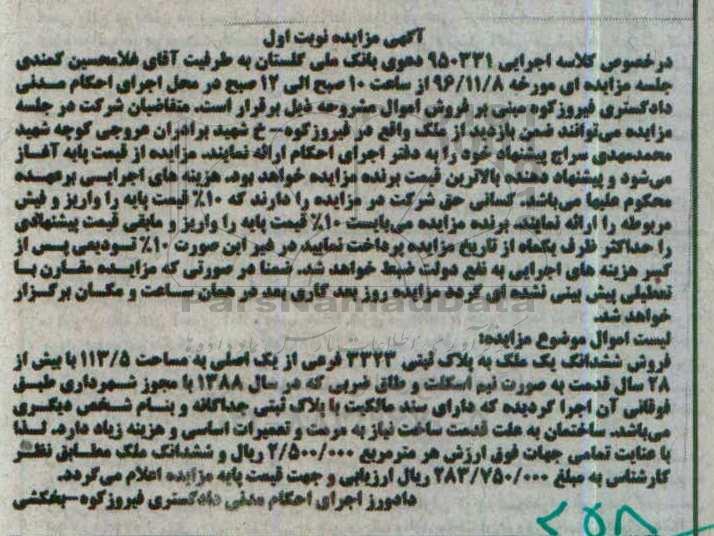 آگهی مزایده نوبت اول
درخصوص کلاسه اجرایی ۹۵۰۳۳۱ دعوی بانک ملی گلستان به طرفیت آقای غلامحسین کمندی
جلسه مزایده ای مورخه ۹۶/۱۱/۸ از ساعت ۱۰ صبح الی ۱۲ صبح در محل اجرای احکام مدنی
دادگستری فیروزکوه مبنی بر فروش اموال مشروحه ذیل برقرار است. متقاضیان شرکت در جلسه
مزایده می‌توانند ضمن بازدید از ملک واقع در فیروزکوه- خ شهید برادران عروجی کوچه شهید
محمدمهدی سراج پیشنهاد خود را به دفتر اجرای احکام ارائه نمایند. مزایده از قیمت پایه آغاز
می‌شود و پیشنهاد دهنده بالاترین قیمت برنده مزایده خواهد بود. هزینه های اجرایی برعهده
محکوم علیها می‌باشد. کسانی حق شرکت در مزایده را دارند که ۱۰٪ قیمت پایه را واریز و فیش
مربوطه را ارائه نمایند. برنده مزایده می‌بایست ۱۰٪ قیمت پایه را واریز و مابقی قیمت پیشنهادی
را حداکثر ظرف یکماه از تاریخ مزایده پرداخت نمایید در غیر این صورت ۱۰٪ تودیعی پس از
کسر هزینه های اجرایی به نفع دولت ضبط خواهد شد. ضمنا در صورتی که مزایده مقارن با
تعطیلی پیش بینی نشده ای گردد مزایده روز بعد کاری بعد در همان ساعت و مکان برگزار
خواهد شد.
لیست اموال موضوع مزایده:
فروش ششدانگ یک ملک به پلاک ثبتی ۳۳۲۳ فرعی از یک اصلی به مساحت ۱۱۳/۵ با بیش از
۲۸ سال قدمت به صورت نیم اسکلت و طاق ضربی که در سال ۱۳۸۸ با مجوز شهرداری طبق
فوقانی آن اجرا گردیده که دارای سند مالکیت با پلاک ثبتی جداگانه و بنام شخص دیگری
می‌باشد. ساختمان به علت قدمت ساخت نیاز به مرمت و تعمیرات اساسی و هزینه زیاد دارد. لذا
با عنایت تمامی جهات فوق ارزش هر مترمربع ۲/۵۰۰/۰۰۰ ریال و ششدانگ ملک مطابق نظر
کارشناس به مبلغ ۲۸۳/۷۵۰/۰۰۰ ریال ارزیابی و جهت قیمت پایه مزایده اعلام می‌گردد.
دادورز اجرای احکام مدنی دادگستری فیروزکوه-بخکشی
ParsNamadData